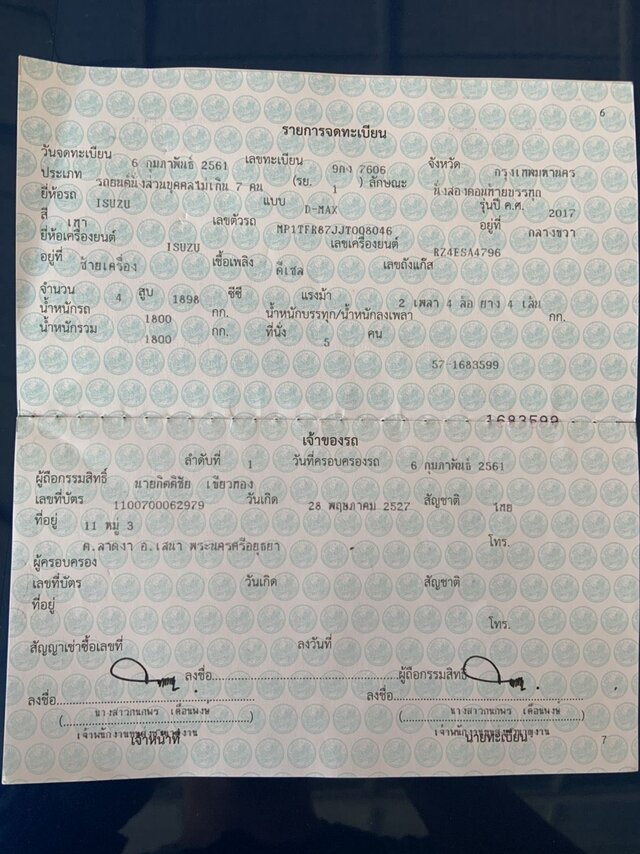 6
รายการจดทะเบียน
วันจดทะเบียน 6 กุมภาพันธ์ 2561 เลขทะเบียน 9กง 7606 จังหวัด กรุงเทพมหานคร
ประเภท รถยนต์นั่งส่วนบุคคลไม่เกิน 7 คน (รย. 1 ) ลักษณะ นั่งสองตอนท้ายบรรทุก
ยี่ห้อรถ ISUZU แบบ D-MAX รุ่นปี ค.ศ. 2017
สี เทา เลขตัวรถ MP1TFR87JJT008046 อยู่ที่ กลางขวา
ยี่ห้อเครื่องยนต์ ISUZU เลขเครื่องยนต์ RZ4ESA4796
อยู่ที่ ซ้ายเครื่อง เชื้อเพลิง ดีเซล เลขถังแก๊ส
จำนวน 4 สูบ 1898 ซีซี แรงม้า 2 เพลา 4 ล้อ ยาง 4 เส้น
น้ำหนักรถ 1800 กก. น้ำหนักบรรทุก/น้ำหนักลงเพลา กก.
น้ำหนักรวม 1800 กก. ที่นั่ง 5 คน
57-1683599
1683599
เจ้าของรถ
ลำดับที่ 1 วันที่ครอบครองรถ 6 กุมภาพันธ์ 2561
ผู้ถือกรรมสิทธิ์ นายกิตติชัย เขียวทอง
เลขที่บัตร 1100700062979 วันเกิด 28 พฤษภาคม 2527 สัญชาติ ไทย
ที่อยู่ 11 หมู่ 3
ต.ลาดงา อ.เสนา พระนครศรีอยุธยา โทร.
ผู้ครอบครอง
เลขที่บัตร วันเกิด สัญชาติ
ที่อยู่
โทร.
สัญญาเช่าซื้อเลขที่ ลงวันที่
ลงชื่อ ผู้ถือกรรมสิทธิ์
ลงชื่อ ลงชื่อ
(นางสาวกนกพร เดือนพงษ์) (นางสาวกนกพร เดือนพงษ์)
เจ้าหน้าที่ นายทะเบียน
7